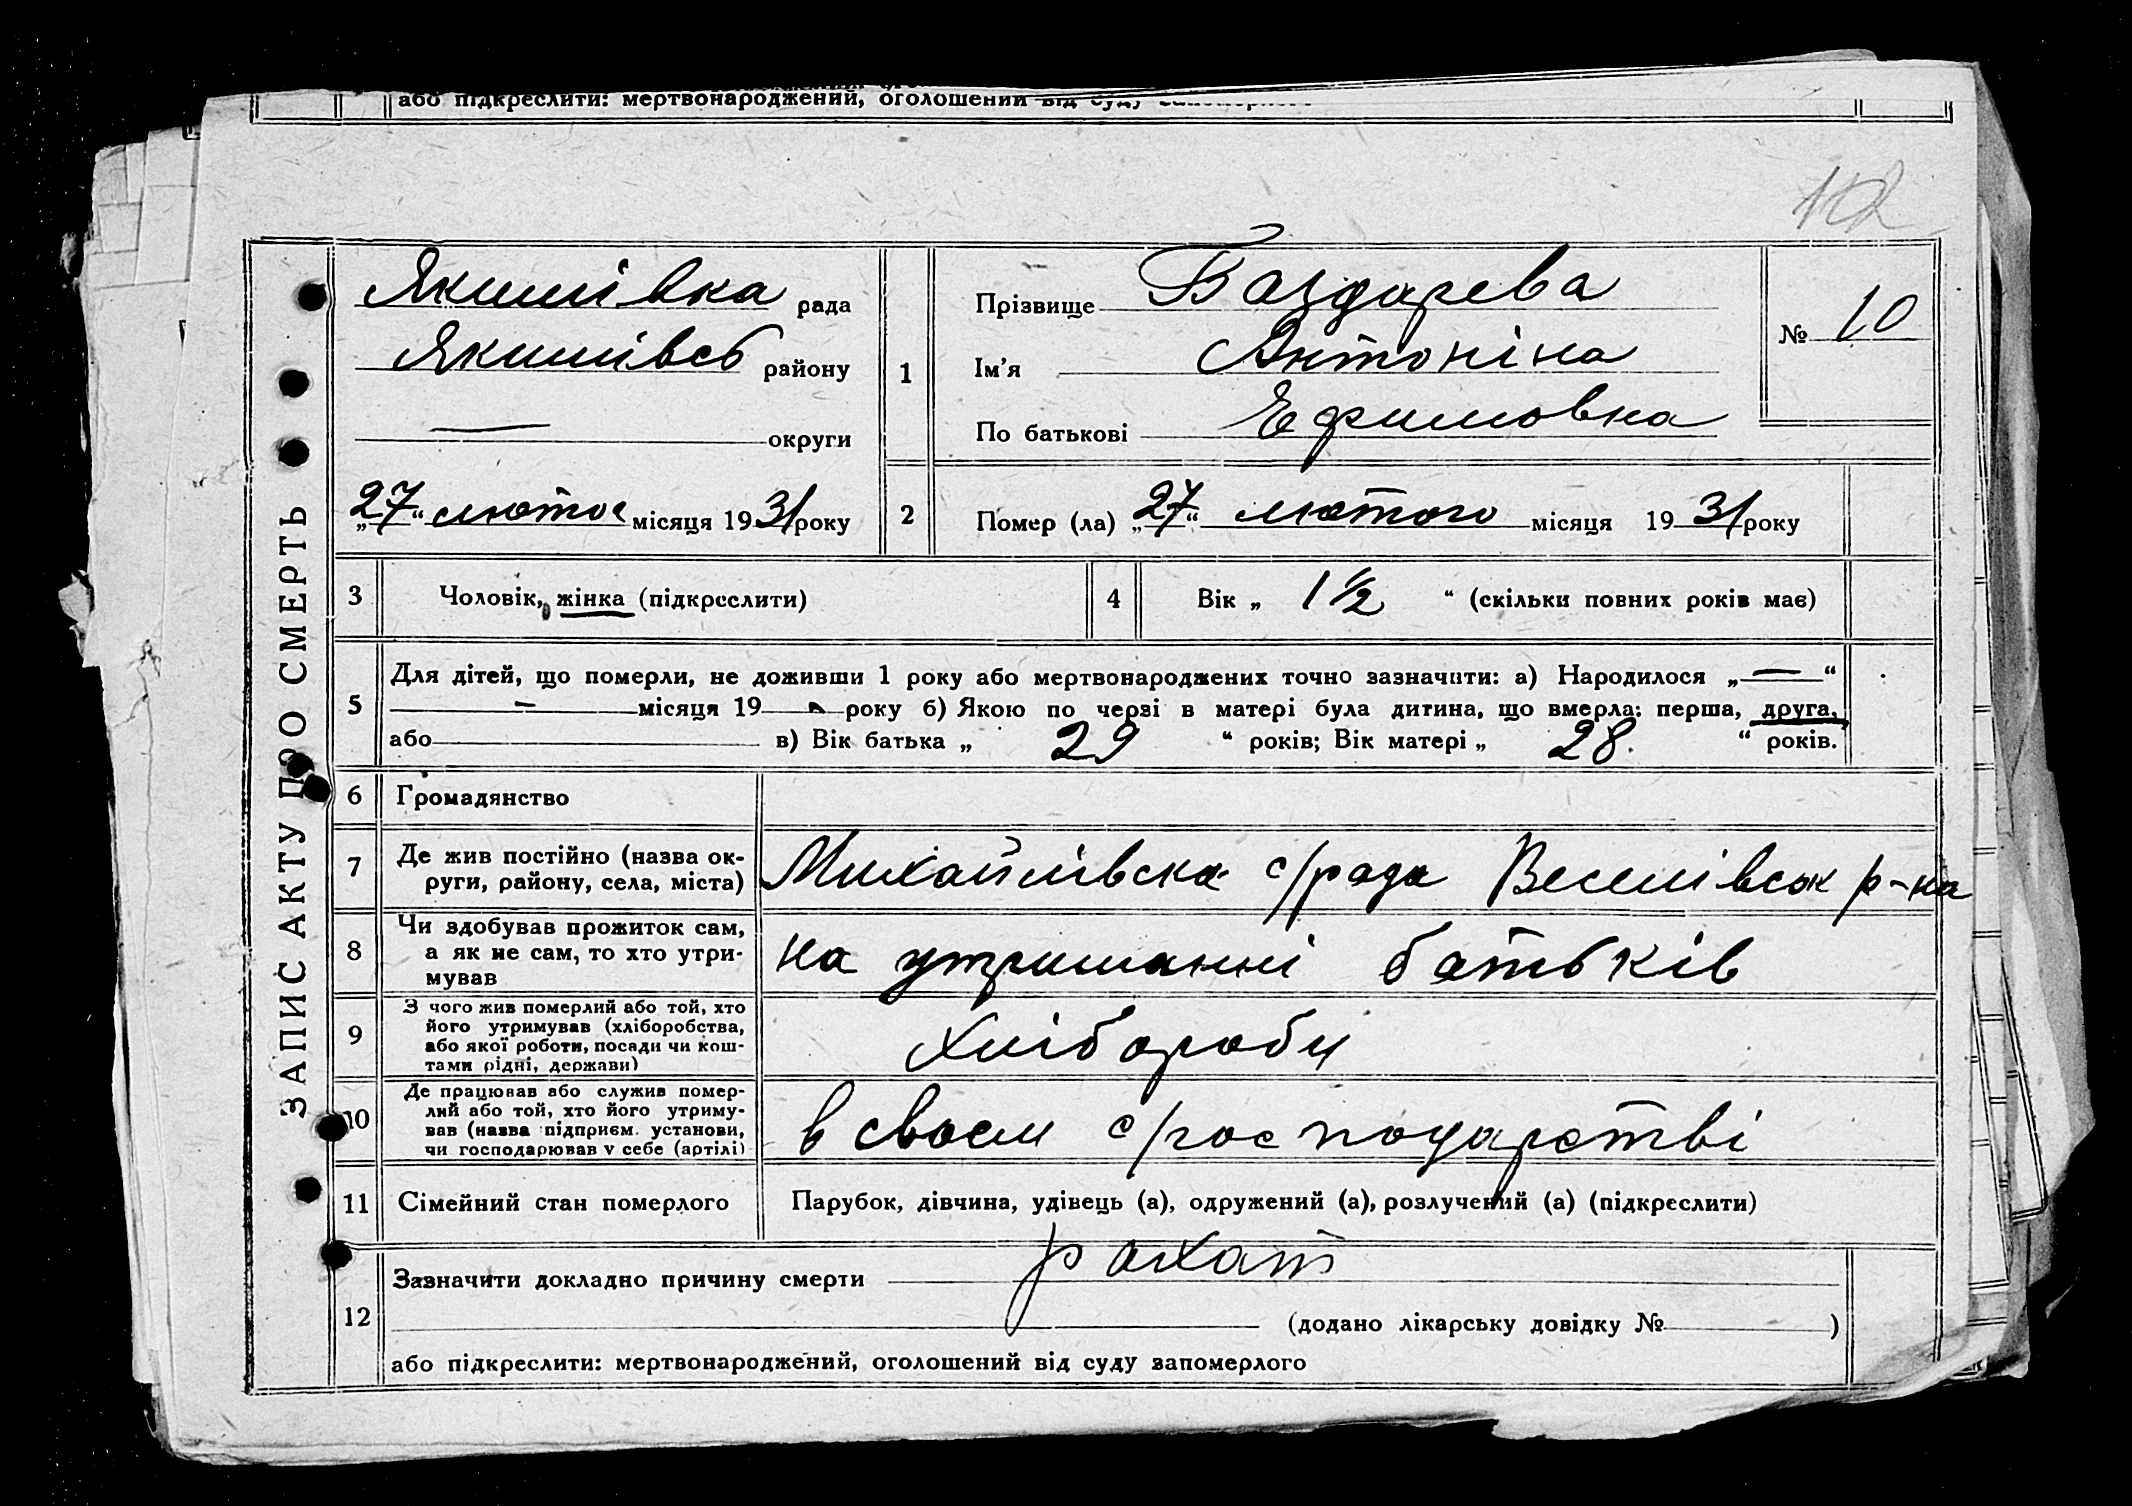 або підкреслити: мертвонароджений, оголошений від суду
ЗАПИС АКТУ ПРО СМЕРТЬ
Якимівка рада
Якимівсь району
— округи
„27“ лютог місяця 1931 року
1
Прізвище Баздарева
Ім'я Антоніна
По батькові Ефимовна
№ 10
2
Помер (ла) „27“ лютого місяця 1931 року
3 Чоловік, жінка (підкреслити)
4 Вік „ 1 1/2 “ (скільки повних років має)
5
Для дітей, що померли, не доживши 1 року або мертвонароджених точно зазначити: а) Народилося „—“
— місяця 19 - року б) Якою по черзі в матері була дитина, що вмерла: перша, друга,
або в) Вік батька „ 29 “ років; Вік матері „ 28. “ років.
6 Громадянство
7 Де жив постійно (назва ок-
руги, району, села, міста)
Михайлівська с/рада Веселівськ р-на
8 Чи здобував прожиток сам,
а як не сам, то хто утри-
мував
на утриманні батьків
9 З чого жив померлий або той, хто
його утримував (хліборобства,
або якої роботи, посади чи кош-
тами рідні, держави)
Хлібороби
10 Де працював або служив помер-
лий або той, хто його утриму-
вав (назва підприєм. установи,
чи господарював у себе (артілі)
в своєм с/господарстві
11 Сімейний стан померлого
Парубок, дівчина, удівець (а), одружений (а), розлучений (а) (підкреслити)
12
Зазначити докладно причину смерти рахат
(додано лікарську довідку № )
або підкреслити: мертвонароджений, оголошений від суду запомерлого